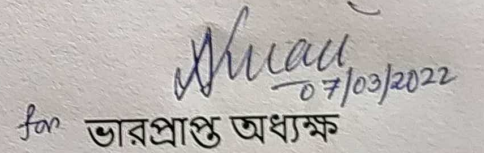 07/03/2022
for ভারপ্রাপ্ত অধ্যক্ষ